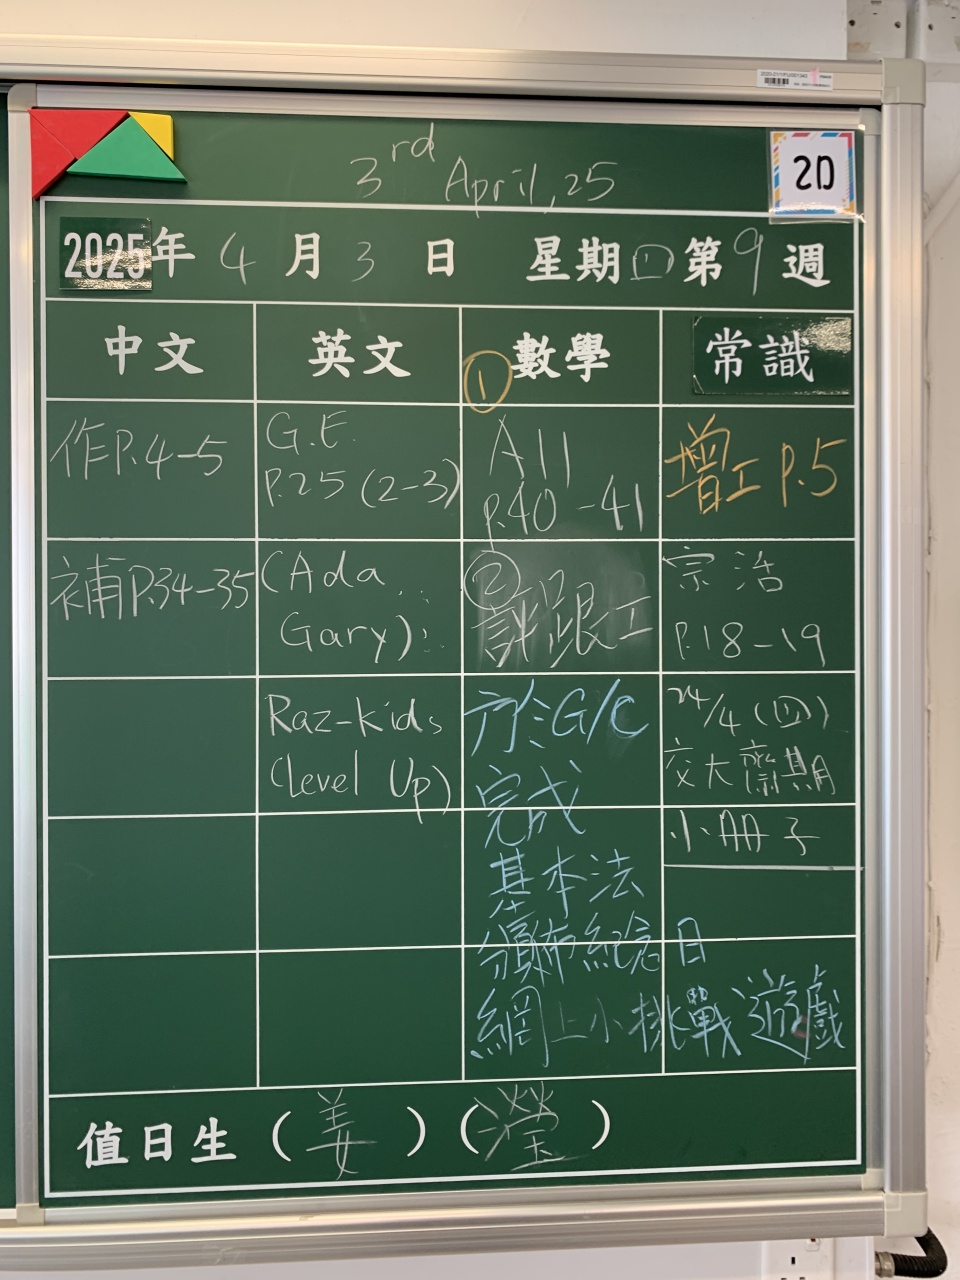 3rd April, 25
2D
2025年 4 月 3 日 星期四 第 9 週
中文
英文
① 數學
常識
作P.4-5
G.E.
P.25 (2-3)
A11
P.40-41
增工 P.5
補P.34-35
(Ada
Gary)
②
評跟工
宗活
P.18-19
Raz-Kids
(Level Up)
於G/C
完成
基本法
頒布紀念日
網上小挑戰遊戲
24/4 (四)
交大齋期
小冊子
值日生 (姜) (瀅)